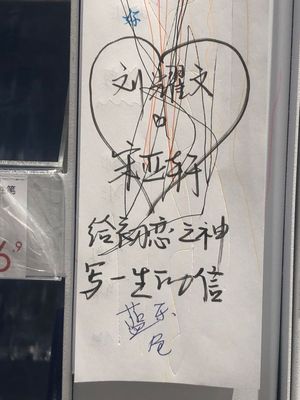 刘耀文
宋亚轩
给初恋之神
写一生的信
笔
6.9